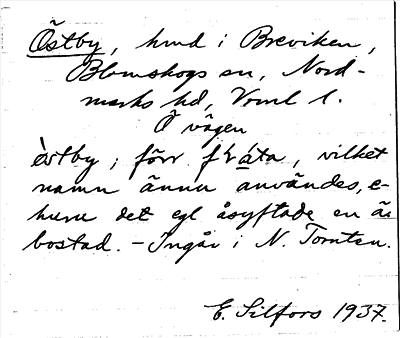 Östby, hmd i Breviken,
Blomskogs sn, Nord-
marks hd, Vrml l.
Ö vägen
östby, förr fråta, vilket
namn ännu användes, e-
huru det egl åsyftade en
bostad. - Ingår i N. Tomten.
E. Silfors 1937.